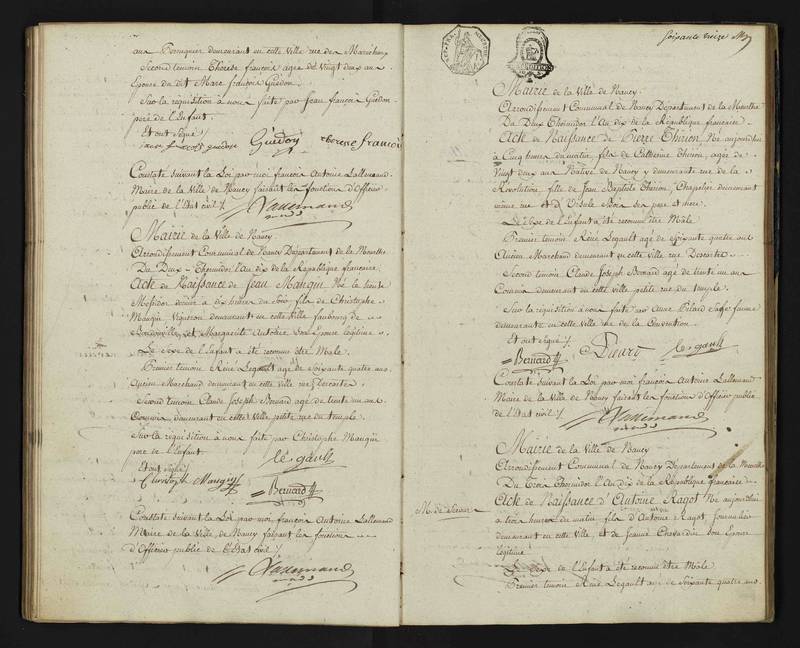 aux Perruquier demeurant en cette Ville rue des Maréchaux
Second temoin Therese françois agée de Vingt deux ans
Epouse du dit Marc françois Guédon.
Sur la requisition à nous faite par Jean françois Guédon
pere de l'Enfant.
Et ont signé /.
Guédon therese françois
Constaté suivant la Loi par moi françois Antoine Lallemand
Maire de la Ville de Nancy faisant les fonctions d'Officier
public de l'Etat civil /.
Lallemand
Mairie de la Ville de Nancy.
Arrondissement Communal de Nancy Département de la Meurthe
Du Deux Thermidor l'An dix de la République française
Acte de Naissance de Jean Mangin Né le trente
Messidor dernier à dix heures du soir fils de Christophe
Mangin Vigneron demeurant en cette Ville faubourg de
et Marguerite Antoine son Epouse légitime.
Le Sexe de l'Enfant a été reconnu être Male.
Premier temoin René Legault agé de Soixante quatre ans
Ancien Marchand demeurant en cette Ville rue Descartes
Second temoin Claude Joseph Bernard agé de trente un ans
demeurant en cette Ville petite rue du temple.
Sur la requisition à nous faite par Christophe Mangin
pere de l'Enfant
Et ont signé /.
le gault
Christoph Mangin
Bernard
Constaté suivant la Loi par moi françois Antoine Lallemand
Maire de la Ville de Nancy faisant les fonctions
d'Officier public de l'Etat civil /.
Lallemand
Soixante treize
Mairie de la Ville de Nancy.
Arrondissement Communal de Nancy Département de la Meurthe
Du Deux Thermidor l'An dix de la République française.
Acte de Naissance de Pierre Thirion Né aujourdhui
à Cinq heures du matin, fils de Catherine Thirion, agée de
Vingt deux ans Native de Nancy y demeurante rue de la
Révolution, fille de Jean Baptiste Thirion, Chapelier demeurant
même rue et d'Ursule ses pere et mere.
Le Sexe de l'Enfant a été reconnu être Male.
Premier temoin René Legault agé de Soixante quatre ans
Ancien Marchand demeurant en cette Ville rue Descartes
Second temoin Claude Joseph Bernard agé de trente un ans
demeurant en cette Ville petite rue du temple.
Sur la requisition à nous faite par Anne Pilard Sage femme
demeurante en cette Ville rue de la Convention.
Et ont signé /.
Bernard le gault
Constaté suivant la Loi par moi françois Antoine Lallemand
Maire de la Ville de Nancy faisant les fonctions d'Officier public
de l'Etat civil /.
Lallemand
Mairie de la Ville de Nancy
Arrondissement Communal de Nancy Département de la Meurthe
Du Trois Thermidor l'An dix de la République française
Acte de Naissance d'Antoine Ragot Né aujourdhui
à trois heures du matin fils d'Antoine Ragot Journalier
demeurant en cette Ville, et de Jeanne Chevardin son Epouse
légitime.
Le Sexe de l'Enfant a été reconnu être Male
Premier temoin René Legault agé de Soixante quatre ans.